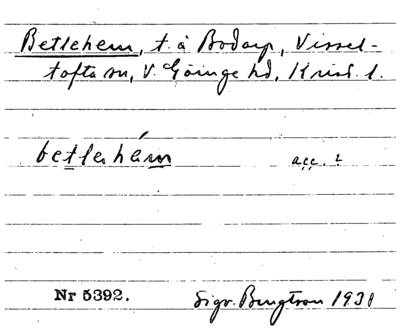 Betlehem, t. å Bodarp, Vissel-
tofta sn, V. Göinge hd, Krist. l.
betlehém
acc. 2
Nr 5392.
Sigv. Bengtson 1931